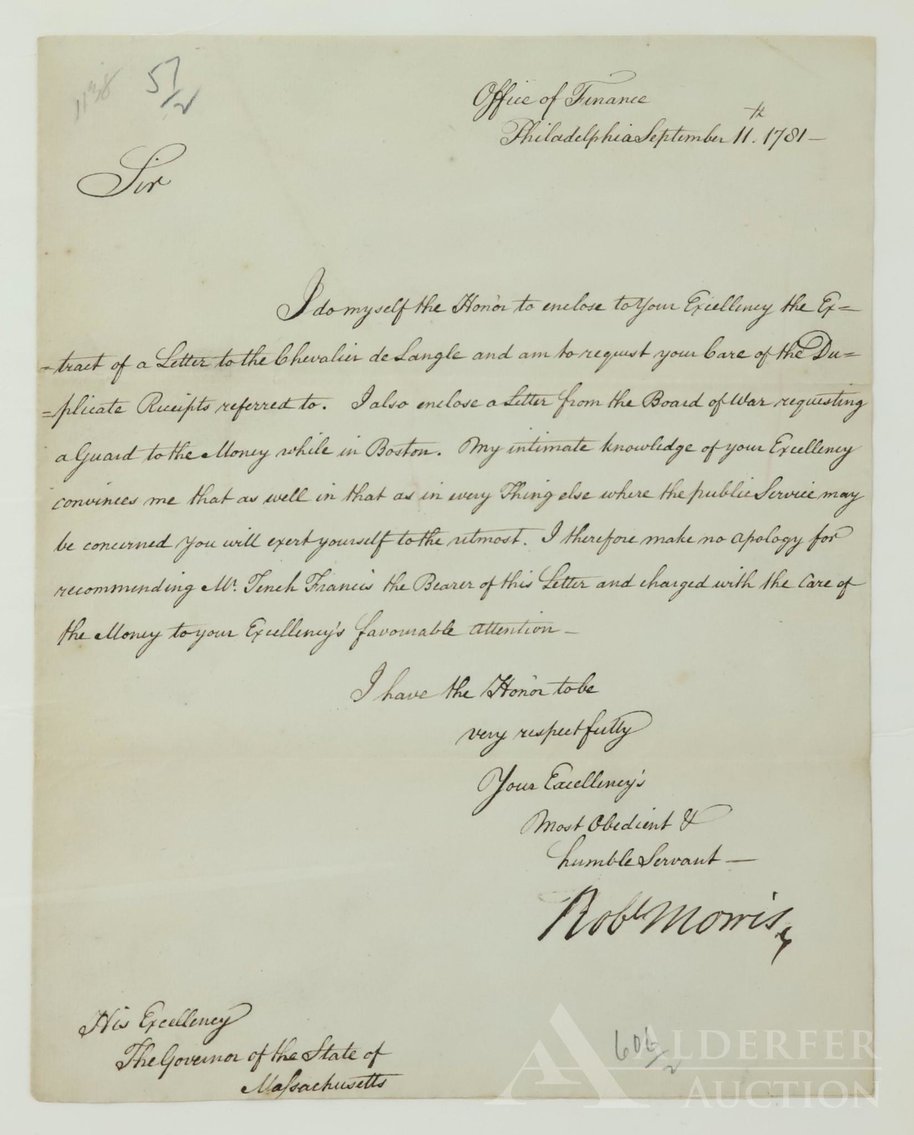 1138
57/2
Office of Finance
Philadelphia September 11th. 1781 —
Sir
I do myself the Honor to enclose to Your Excellency the Ex=
=tract of a Letter to the Chevalier de Langle and am to request your Care of the Du=
=plicate Receipts referred to. I also enclose a Letter from the Board of War requesting
a Guard to the Money while in Boston. My intimate knowledge of your Excellency
convinces me that as well in that as in every Thing else where the public Service may
be concerned You will exert yourself to the utmost. I therefore make no apology for
recommending Mr. Tench Francis the Bearer of this Letter and charged with the Care of
the Money to your Excellency's favourable attention —
I have the Honor to be
very respectfully
Your Excellency's
Most Obedient &
humble Servant —
Robt Morris
His Excellency
The Governor of the State of
Massachusetts
606/2
ALDERFER
AUCTION